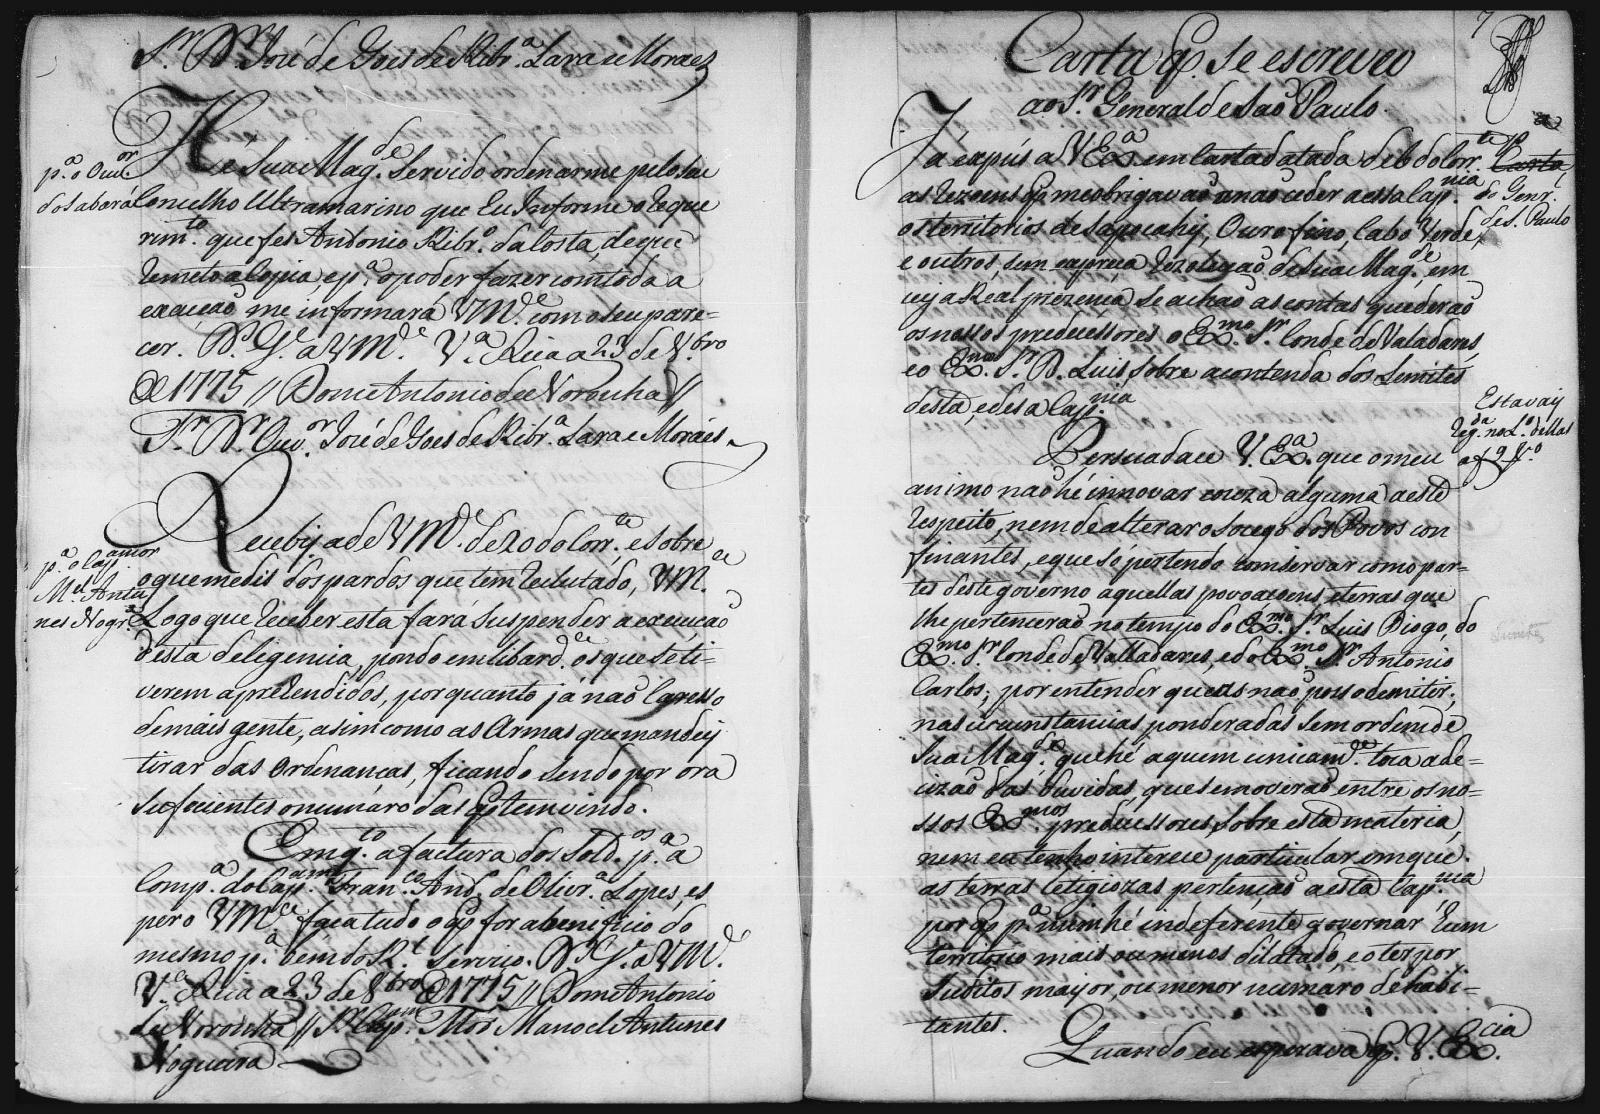 Sr. Dr. José de Goes de Ribr.ª Lara e Moraes
p.ª o Ouv.or
do Sabará
Hé Sua Mag.de Servido ordenarme pelo Seu
Concelho Ultramarino que Eu Informe o reque
rim.to que fes Antonio Ribr.o da Costa, de que
remeto a Copia, e p.ª o poder fazer com toda a
exacçaõ me informará VM.ce com o seu pare=
cer. Ds. G.e a VM.ce V.ª Rica a 23 de 8.bro
de 1775 // Dom Antonio de Noronha //
Sr. Dr. Ouv.or José de Goes de Ribr.ª Lara e Moraes
p.ª o Cap.am mor
M.el Antu
nes Nogr.ª
Recebi a de VM.ce de 20 do Corr.te e sobre
o que me dis dos pardos que tem reclutado, VM.ce
Logo que receber esta fará Suspender a execuçaõ
desta deligencia, pondo em libard.e os que se ti-
verem aprehendidos, porquanto já naõ Careço
de mais gente, asim como as Armas que mandey
tirar das Ordenanças, ficando sendo por ora
Suficientes o numaro das q̃ tem vindo.
Em q.to a factura dos Sold.os p.ª a
Comp.ª do Cap.am Fran.co And.e de Olivr.ª Lopes, es
pero VM.ce faça tudo o q̃ for a beneficio do
mesmo p.ª bem do R.l Serviço. Ds. G.e a VM.ce
V.ª Rica a 23 de 8.bro de 1775 // Dom Antonio
de Noronha // Sr. Cap.am Mor Manoel Antunes
Nogueira
7
Carta q̃. se escreveo
ao Sr. General de Saõ Paulo.
Carta
do Gen.r
de S. Paulo
Já expús a V Ex.ª em Carta datada de 6 do Corr.te
as rezoens q̃ me obrigavaõ a naõ ceder a essa Cap.nia
os territorios de Sapocahy, Ouro fino, Cabo Verde,
e outros, sem expreça rezoluçaõ de Sua Mag.de, em
cuja Real prezença Se achaõ as contas que deraõ
os nossos predecessores o Ex.mo Sr. Conde de Valadares,
e o Ex.mo Sr. D. Luis, sobre a contenda dos Lemites
desta, e desa Cap.nia
Estavaij
reg.da no L.o dellas
a f 9 v.o
Persuadase V. Ex.ª que o meu
animo naõ hé innovar couza alguma a este
respeito, nem de alterar o Socego dos Povos con
finantes, e que só pertendo comservar como par=
tes deste governo aquellas povoaçoens, e terras que
lhe pertenceraõ no tempo do Ex.mo Sr. Luis Diogo, do
Ex.mo Sr. Conde de Valladares, e do Ex.mo Sr. Antonio
Carlos; por entender que as naõ posso demitir,
nas circunstancias ponderadas Sem ordem de
Sua Mag.de, que hé a quem unicam.te toca a de=
cizaõ das duvidas, que se moveraõ entre os no=
ssos Ex.mos predecessores, Sobre esta materia,
nem eu tenho interece particular em que
as terras letigiozas pertençaõ a esta Cap.nia
por q̃ p.ª mim hé indeferente governar hum
territorio mais ou menos dilatado, e o ter por
Suditos mayor, ou menor numaro de habi-
tantes.
Quando eu esperava q̃. V. Ex.cia